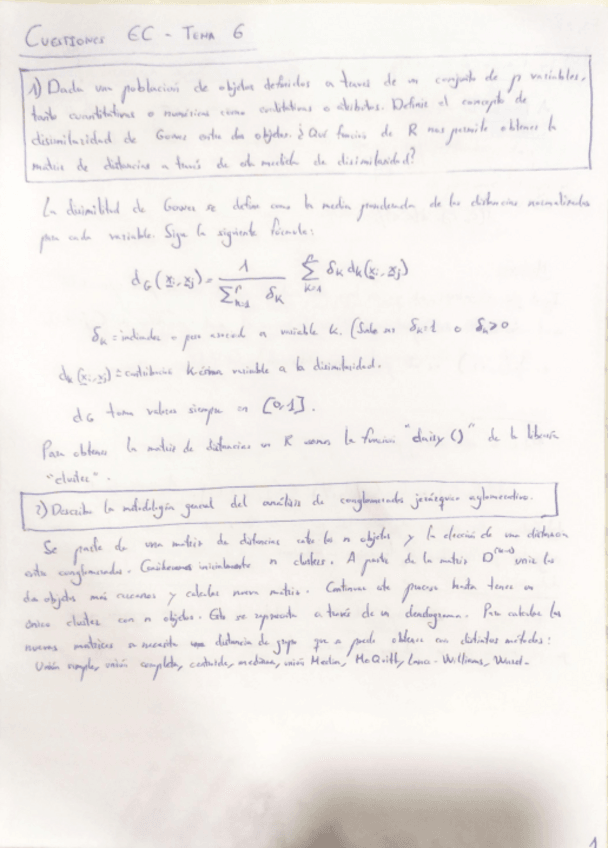 CUESTIONES EC - TEMA 6
1) Dada una población de objetos definidos a través de un conjunto de p variables,
tanto cuantitativas o numéricas como cualitativas o atributos. Define el concepto de
disimilaridad de Gower entre dos objetos. ¿Qué función de R nos permite obtener la
matriz de distancias a través de esta medida de disimilaridad?
La disimilitud de Gower se define como la media ponderada de las distancias normalizadas
para cada variable. Sigue la siguiente fórmula:
d_G (x_i, x_j) = 1 / Σ_{k=1}^{p} δ_k Σ_{k=1}^{p} δ_k d_k (x_i, x_j)
δ_k = indicador o peso asociado a variable k. ( δ_k=1 o δ_k>0
d_k (x_i, x_j) = contribución k-ésima variable a la disimilaridad.
d_G toma valores siempre en [0,1].
Para obtener la matriz de distancias en R usamos la función "daisy ()" de la librería
"cluster".
2) Describe la metodología general del análisis de conglomerados jerárquico aglomerativo.
Se parte de una matriz de distancias entre los n objetos y la elección de una distancia
entre conglomerados. Consideramos inicialmente n clusters. A partir de la matriz D unir los
dos objetos más cercanos y calcular nueva matriz. Continuar este proceso hasta tener un
único cluster con n objetos. Esto se representa a través de un dendograma. Para calcular las
nuevas matrices se necesita una distancia de grupo que se puede obtener con distintos métodos:
Unión simple, unión completa, centroide, mediana, unión Media, McQuitty, Lance-Williams, Ward.
1